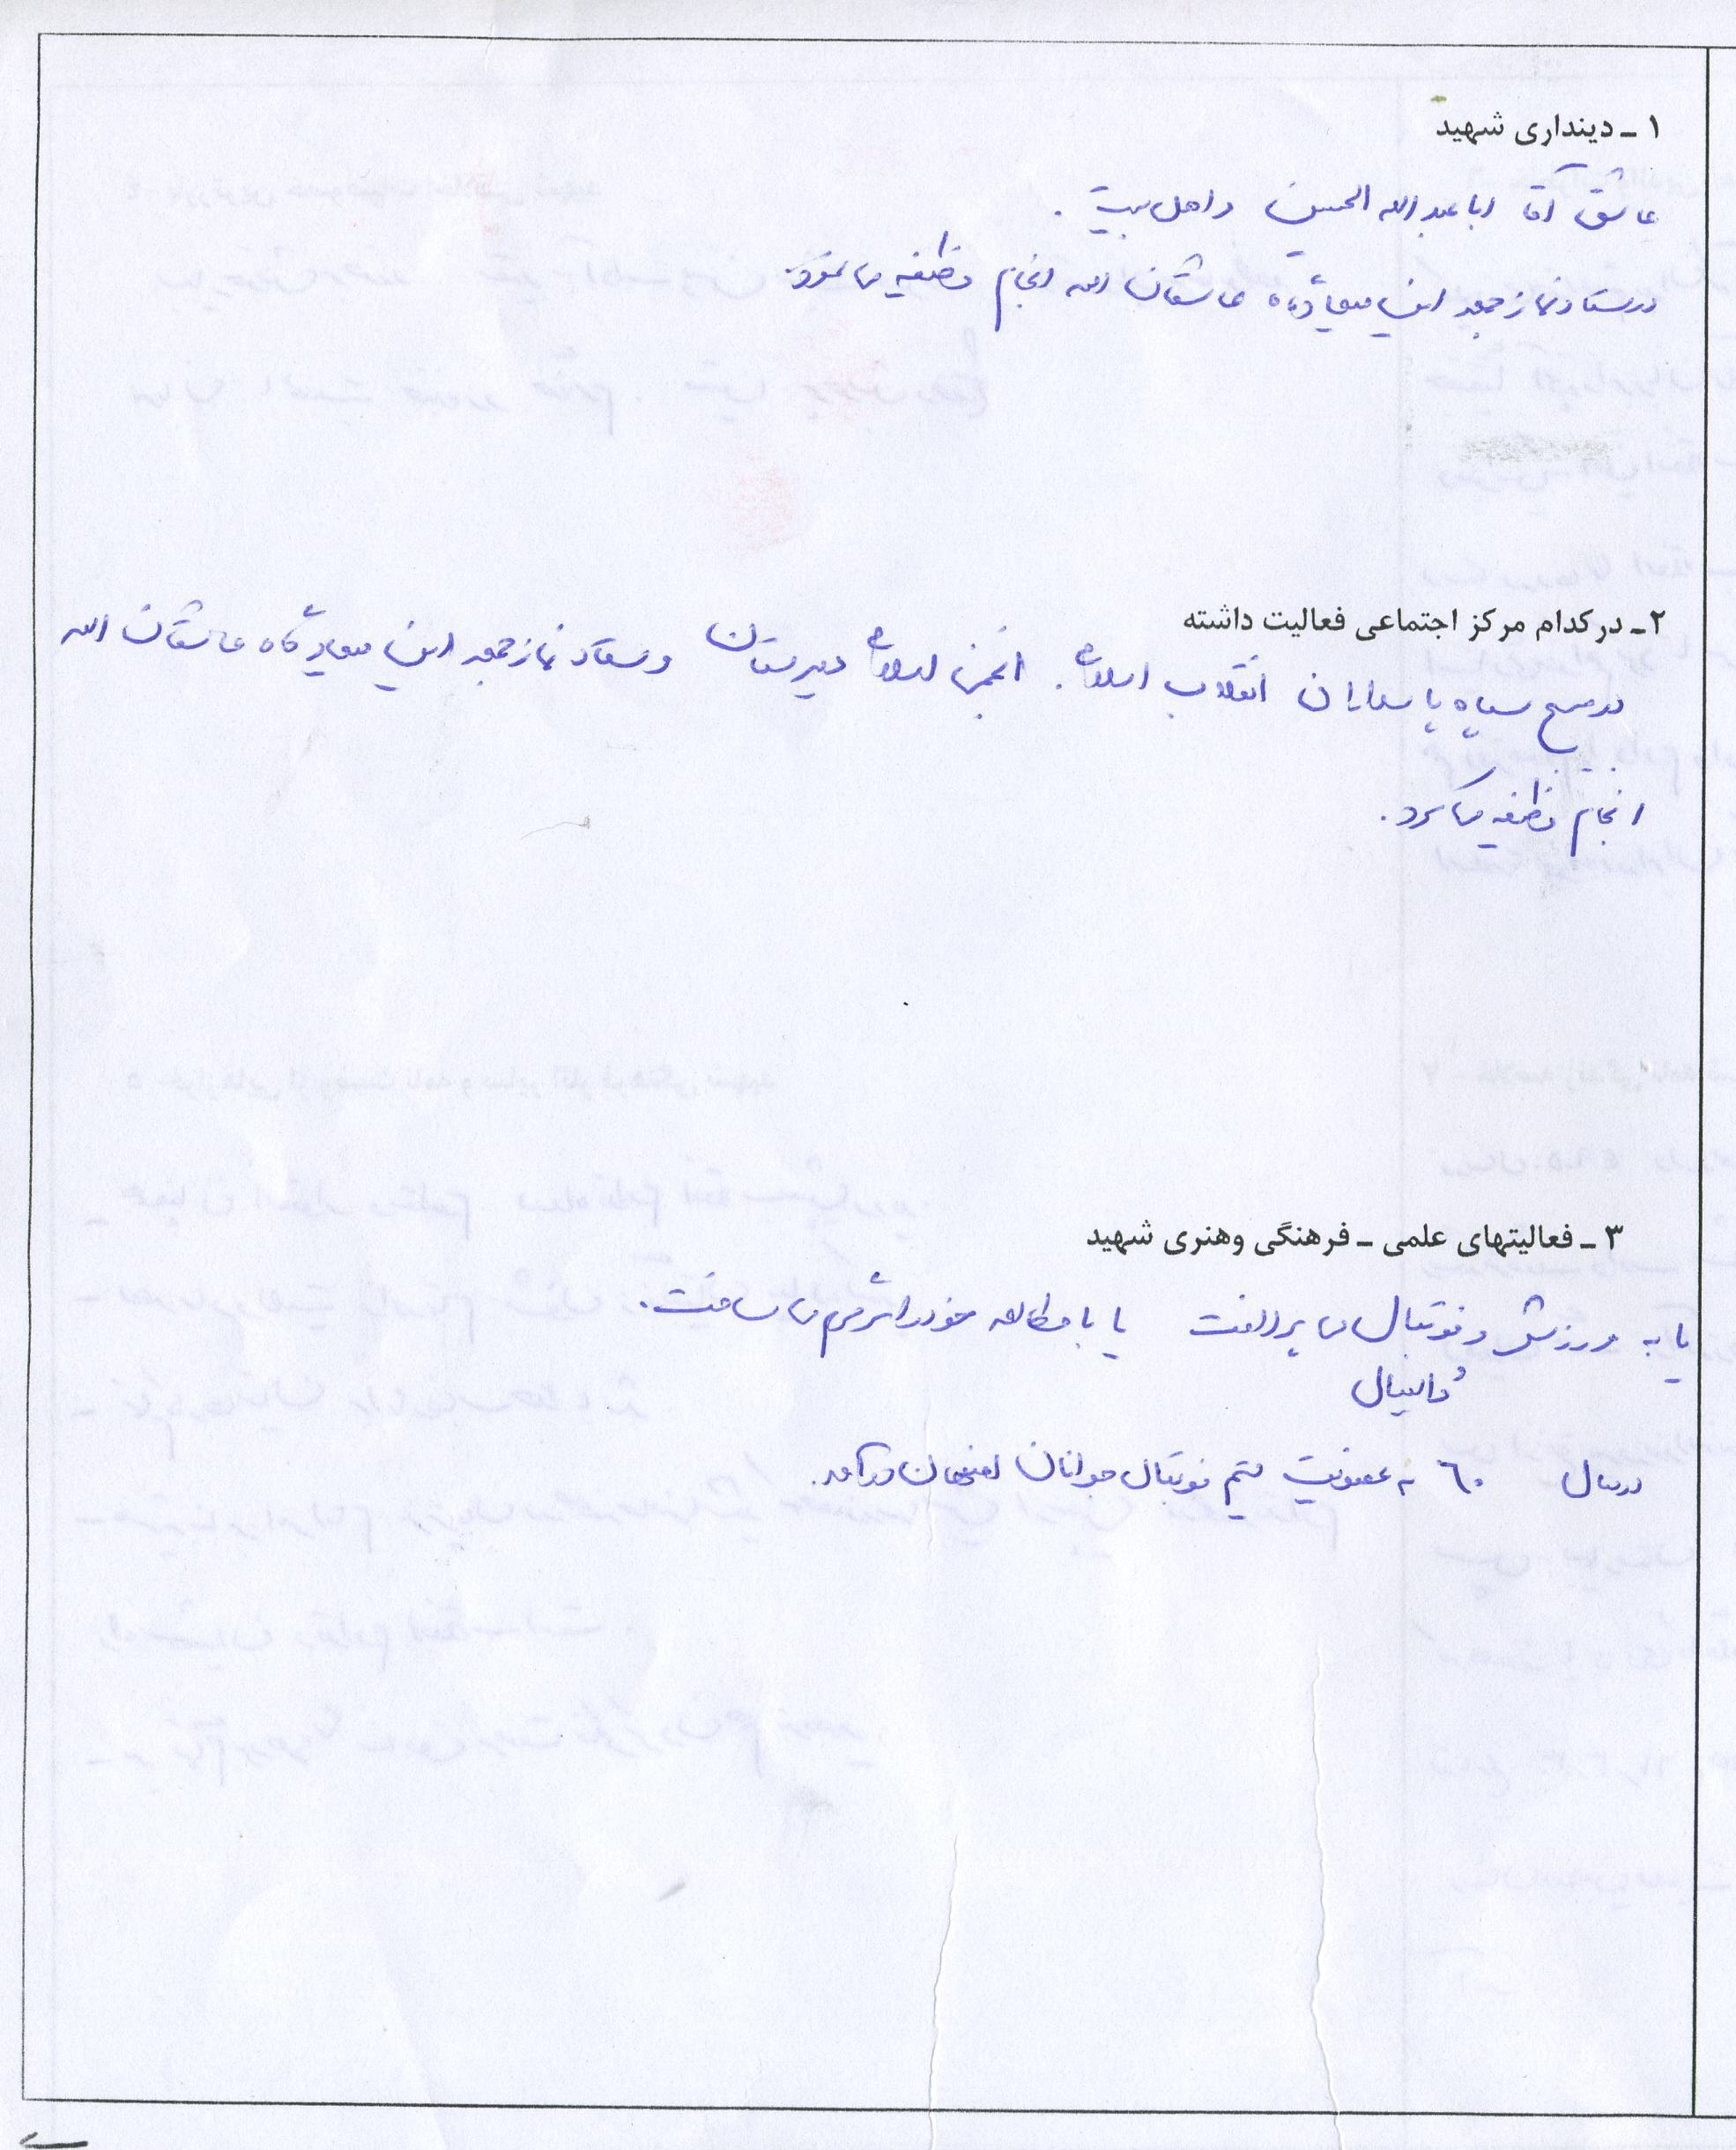 ۱ ـ دینداری شهید
عاشق آقا اباعبدالله الحسین و اهل بیت .
در ستاد نماز جمعه این میعادگاه عاشقان الله انجام وظیفه می نمود.
۲ـ در کدام مرکز اجتماعی فعالیت داشته
در بسیج سپاه پاسداران انقلاب اسلامی . انجمن اسلامی دبیرستان و ستاد نماز جمعه این میعادگاه عاشقان الله
انجام وظیفه می کرد .
۳ ـ فعالیتهای علمی ـ فرهنگی وهنری شهید
یا به ورزش و فوتبال می پرداخت یا با مطالعه خود را سرگرم می ساخت.
والیبال
در سال ٦٠ به عضویت تیم فوتبال جوانان اصفهان درآمد.